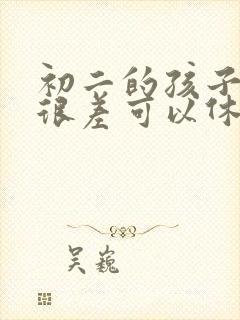 初二的孩子
很差可以休
吴巍